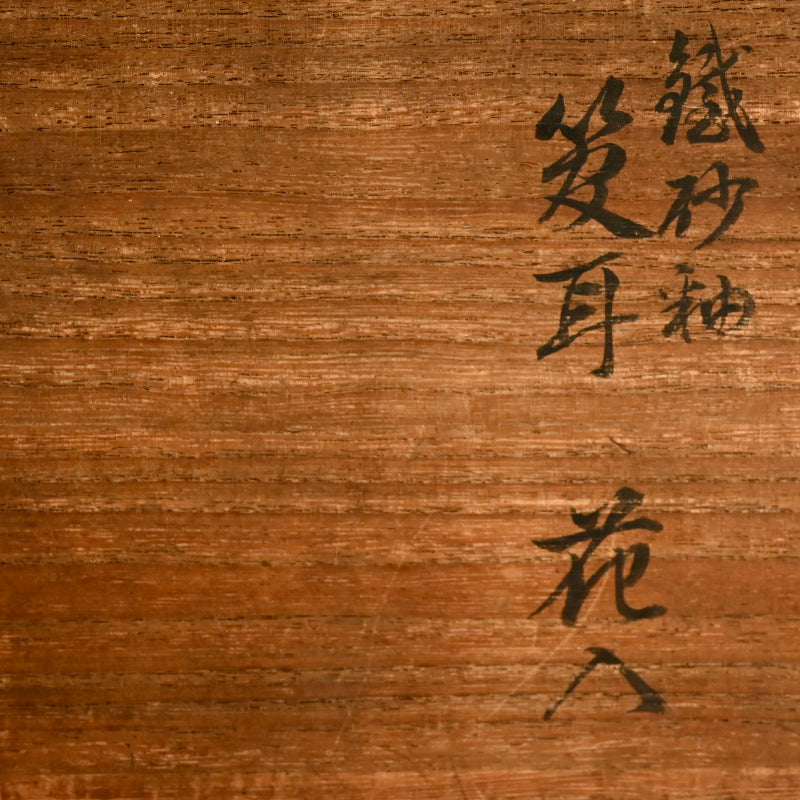 鐵砂釉
笈耳 花入